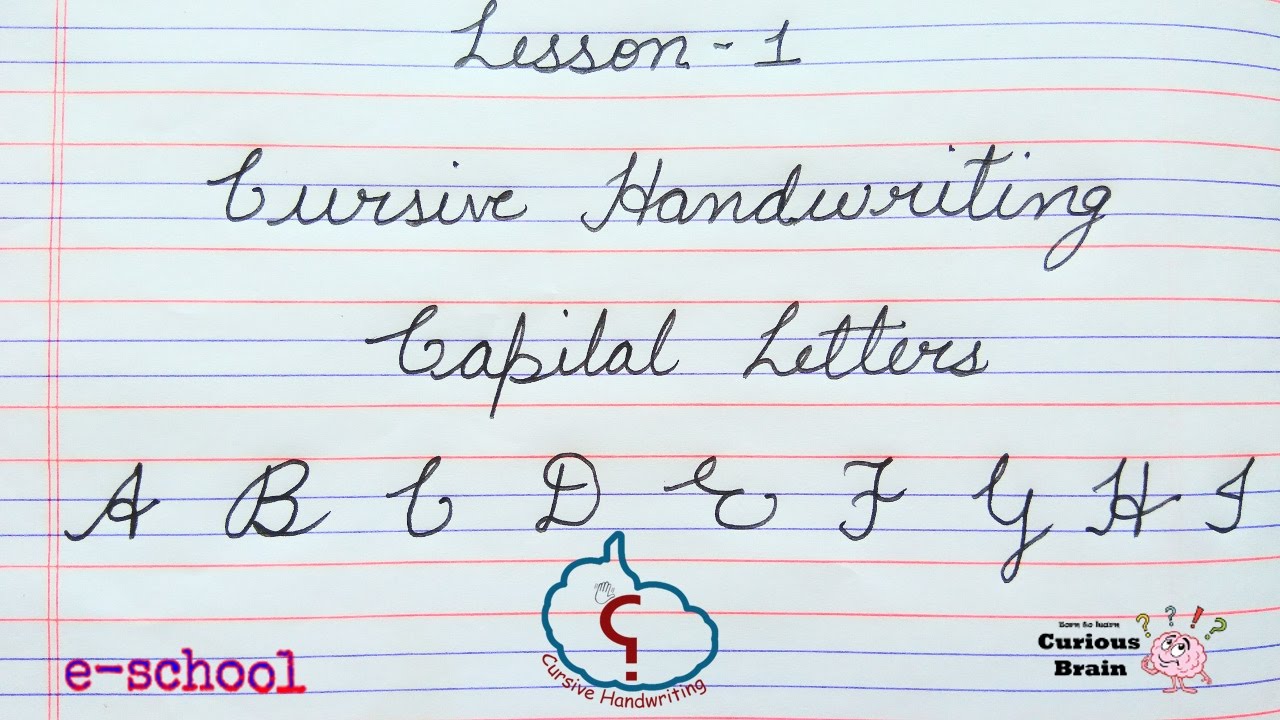 Lesson - 1
Cursive Handwriting
Capital Letters
A B C D E F G H I
Cursive Handwriting
e-school
Born to learn
Curious
Brain